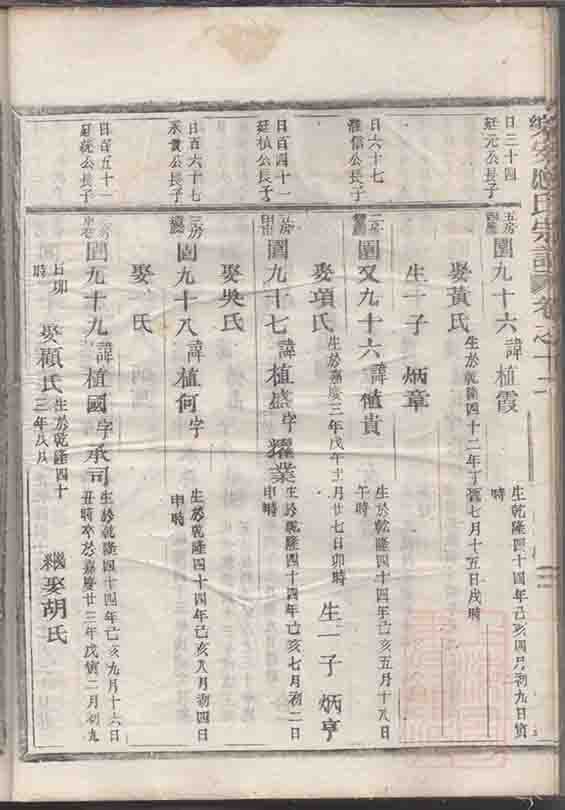 氏宗譜 卷之十一
日三十四
延元公長子
五房
圓九十六 諱植霞
生於乾隆四十四年己亥四月初九日寅
時
娶黃氏
生於乾隆四十二年丁酉七月十五日戌時
生一子 炳章
日六十七
公長子
二房
圓又九十六 諱植貴
生於乾隆四十四年己亥五月十八日
午時
娶項氏
生於嘉慶三年戊午十一月廿七日卯時
生一子 炳亨
日百四十一
延楨公長子
房
圓九十七 諱植盛 字耀業
生於乾隆四十四年己亥七月初二日
申時
娶吳氏
日百六十七
承貴公長子
三房
圓九十八 諱植何 字
生於乾隆四十四年己亥八月初四日
申時
娶 氏
日百五十一
延統公長子
房
圓九十九 諱植國 字承司
生於乾隆四十四年己亥九月十六日
丑時卒於嘉慶廿三年戊寅二月初九
日卯
時
娶顧氏
生於乾隆四十
三年戊戌
繼娶胡氏